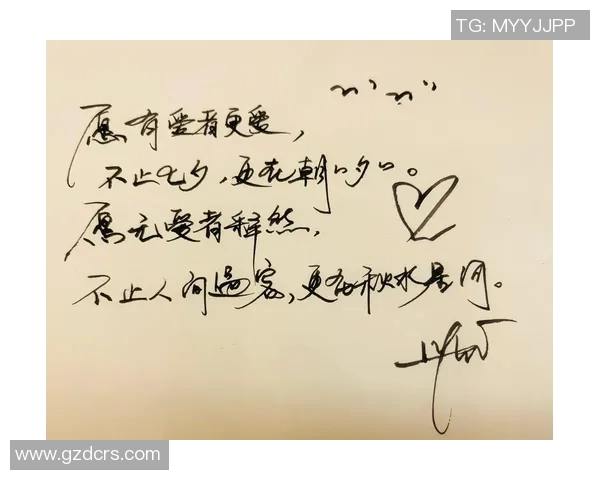 TG: MYYJJPP
愿有爱者更爱，
不止七夕，更在朝夕。
愿无爱者释然，
不止人间过客，更在秋水星河。
www.gzdcrs.com